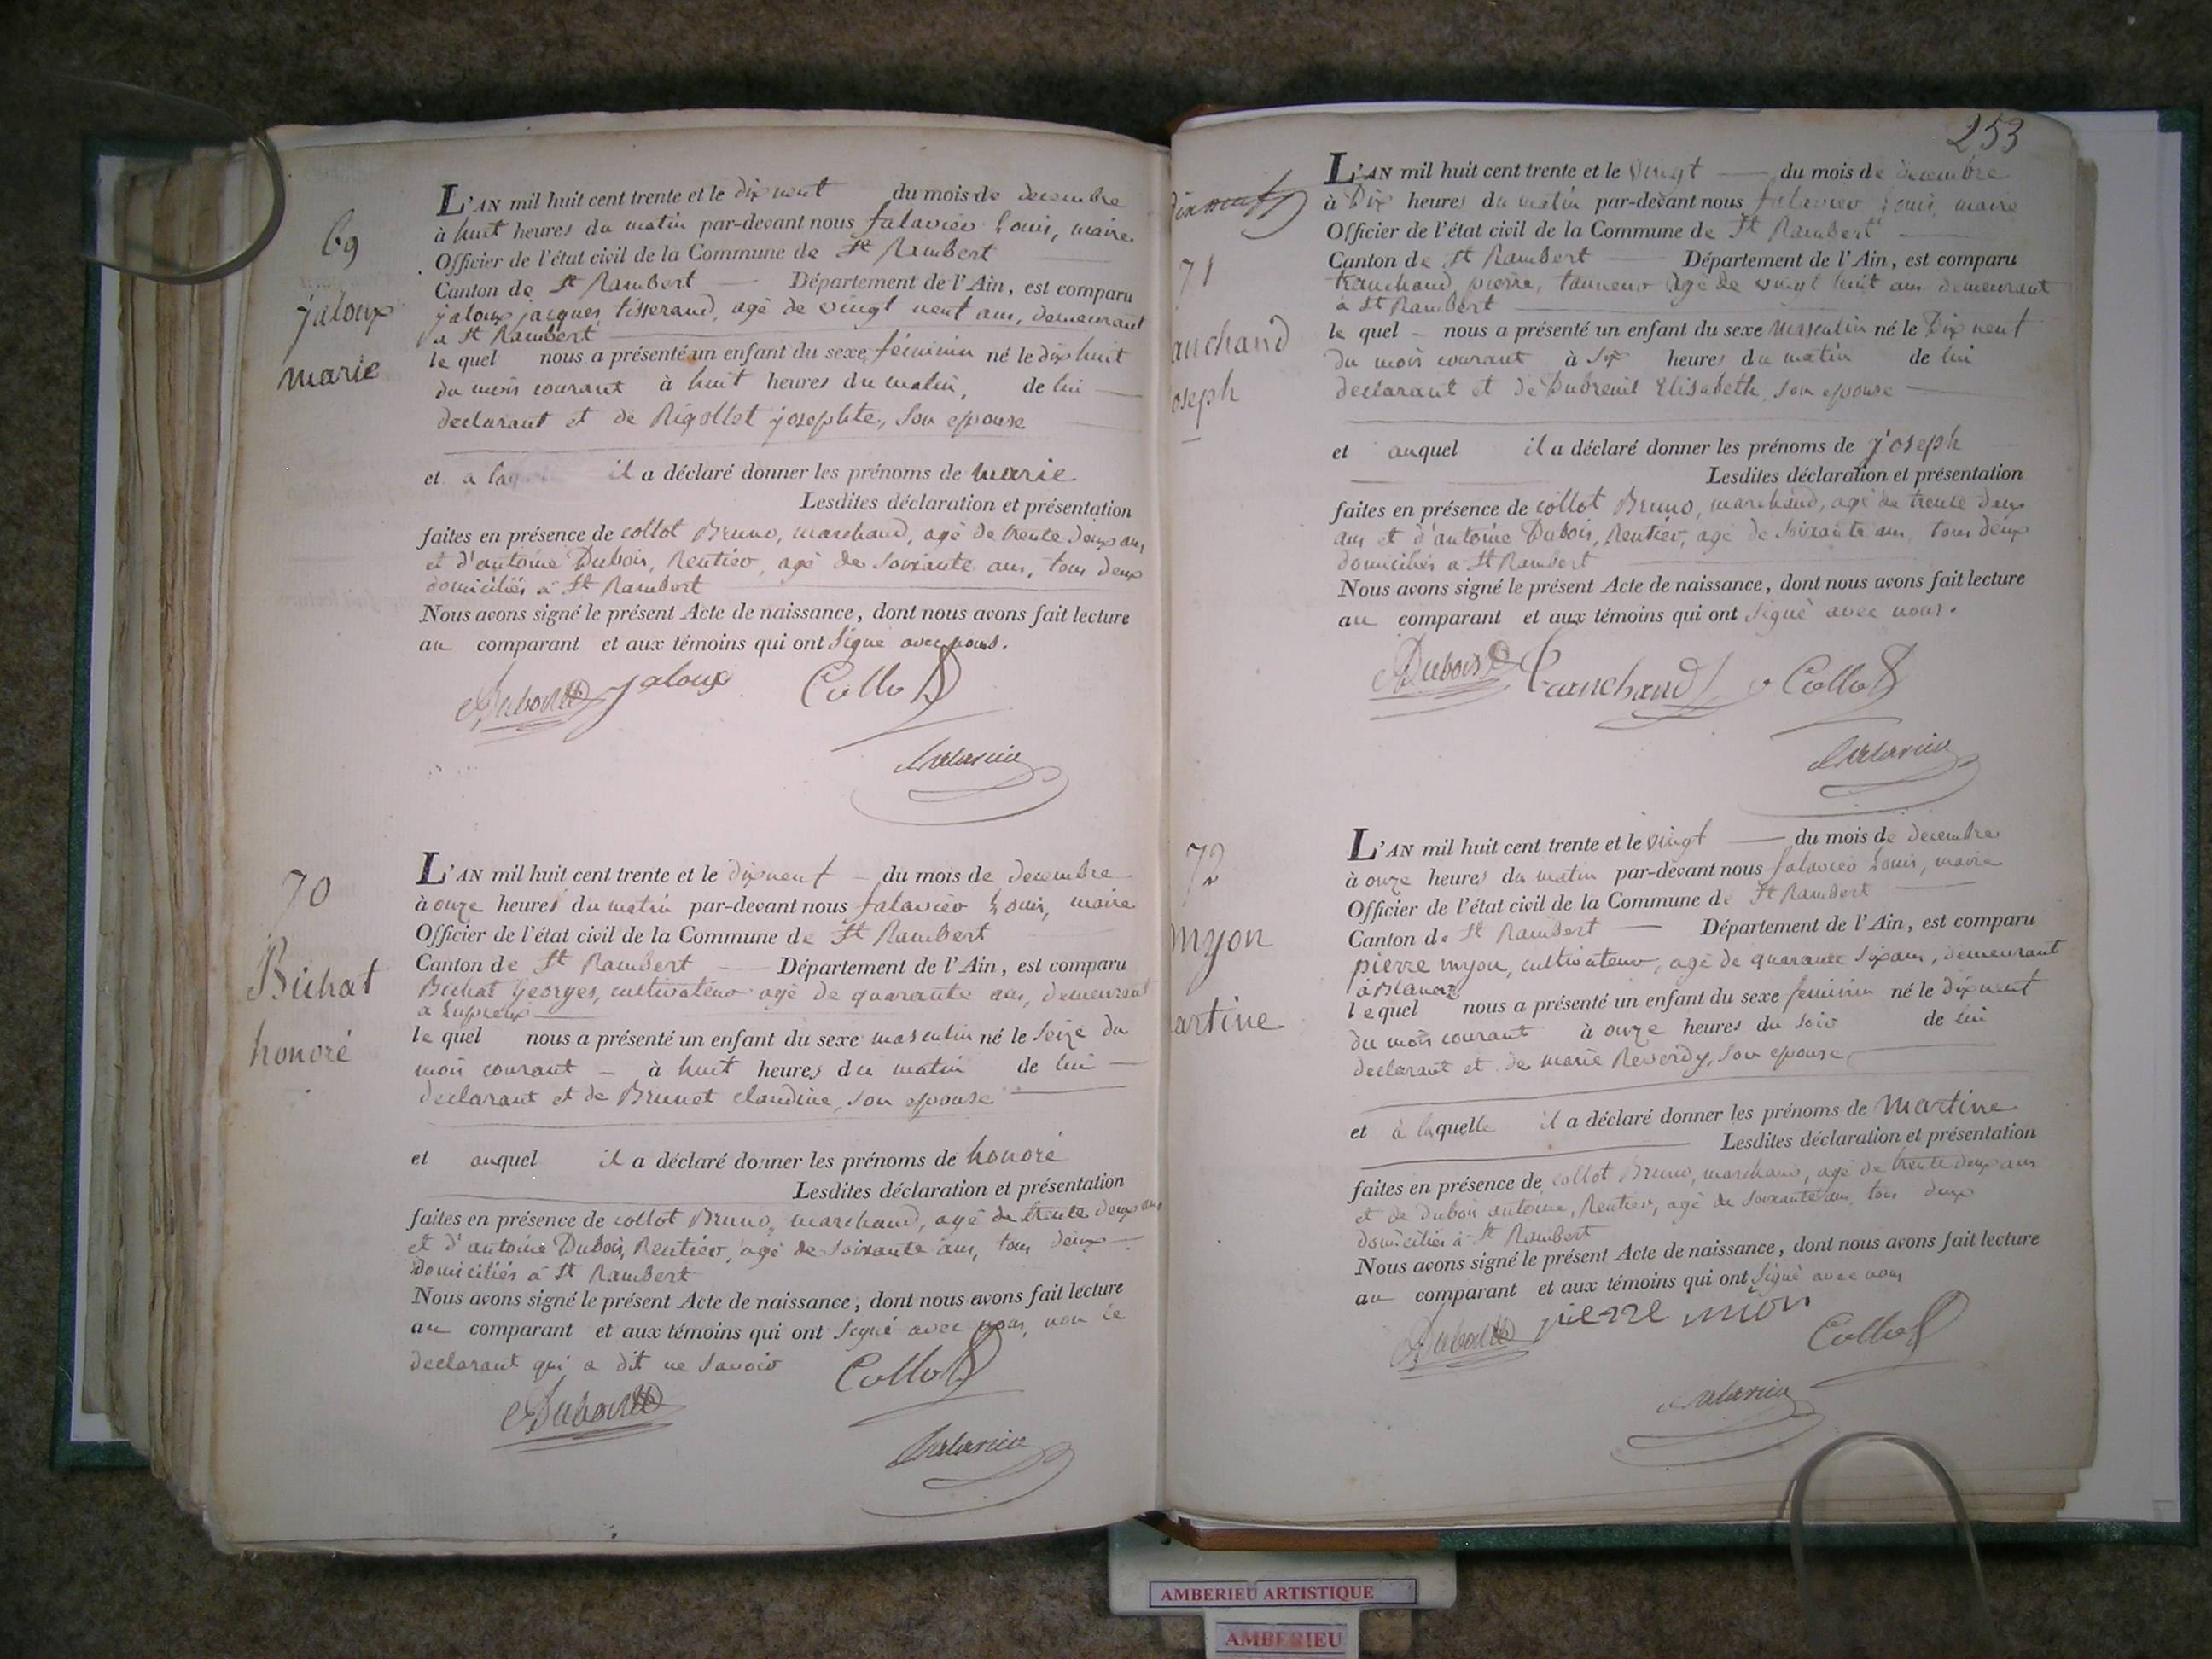 69
jaloux
marie
L'AN mil huit cent trente et le dix neuf du mois de decembre
à huit heures du matin par-devant nous falavier Louis, maire
Officier de l'état civil de la Commune de St Rambert
Canton de St Rambert Département de l'Ain, est comparu
jaloux jacques tisserand, agé de vingt neuf ans, demeurant
a St Rambert
le quel nous a présenté un enfant du sexe féminin né le dix huit
du mois courant à huit heures du matin, de lui
declarant et de Rigollet josephte, son epouse
et a il a déclaré donner les prénoms de marie
Lesdites déclaration et présentation
faites en présence de collot Bruno, marchand, agé de trente deux ans
et d'antoine Dubois, Rentier, agé de soixante ans, tous deux
domiciliés à St Rambert
Nous avons signé le présent Acte de naissance, dont nous avons fait lecture
au comparant et aux témoins qui ont signé avec nous.
Dubois jaloux Collot
falavier
70
Bichat
honoré
L'AN mil huit cent trente et le dix neuf du mois de decembre
à onze heures du matin par-devant nous falavier Louis, maire
Officier de l'état civil de la Commune de St Rambert
Canton de St Rambert Département de l'Ain, est comparu
Bichat Georges, cultivateur agé de quarante ans, demeurant
a
le quel nous a présenté un enfant du sexe masculin né le seize du
mois courant à huit heures du matin de lui
declarant et de Brunet claudine, son epouse
et auquel il a déclaré donner les prénoms de honoré
Lesdites déclaration et présentation
faites en présence de collot Bruno, marchand, agé de trente deux ans
et d'antoine Dubois, Rentier, agé de soixante ans, tous deux
domiciliés à St Rambert
Nous avons signé le présent Acte de naissance, dont nous avons fait lecture
au comparant et aux témoins qui ont signé avec nous, non le
declarant qui a dit ne savoir Collot
Dubois
falavier
253
71
auchand
oseph
L'AN mil huit cent trente et le vingt du mois de decembre
à Dix heures du matin par-devant nous falavier Louis, maire
Officier de l'état civil de la Commune de St Rambert
Canton de St Rambert Département de l'Ain, est comparu
tranchand pierre, tanneur agé de vingt huit ans demeurant
à St Rambert
le quel nous a présenté un enfant du sexe masculin né le Dix neuf
du mois courant à six heures du matin de lui
declarant et de Dubreuil Elisabeth, son epouse
et auquel il a déclaré donner les prénoms de joseph
Lesdites déclaration et présentation
faites en présence de collot Bruno, marchand, agé de trente deux
ans et d'antoine Dubois, Rentier, agé de soixante ans, tous deux
domiciliés a St Rambert
Nous avons signé le présent Acte de naissance, dont nous avons fait lecture
au comparant et aux témoins qui ont signé avec nous.
Dubois tranchand Collot
falavier
72
myon
artine
L'AN mil huit cent trente et le vingt du mois de decembre
à onze heures du matin par-devant nous falavier Louis, maire
Officier de l'état civil de la Commune de St Rambert
Canton de St Rambert Département de l'Ain, est comparu
pierre myon, cultivateur, agé de quarante six ans, demeurant
à Blanaz
lequel nous a présenté un enfant du sexe feminin né le dix neuf
du mois courant à onze heures du soir de lui
declarant et de marie Reverdy, son epouse
et à laquelle il a déclaré donner les prénoms de martine
Lesdites déclaration et présentation
faites en présence de collot Bruno, marchand, agé de trente deux ans
et de Dubois antoine, Rentier, agé de soixante ans, tous deux
domiciliés à St Rambert
Nous avons signé le présent Acte de naissance, dont nous avons fait lecture
au comparant et aux témoins qui ont signé avec nous
Dubois pierre mion Collot
falavier
AMBERIEU ARTISTIQUE
AMBERIEU